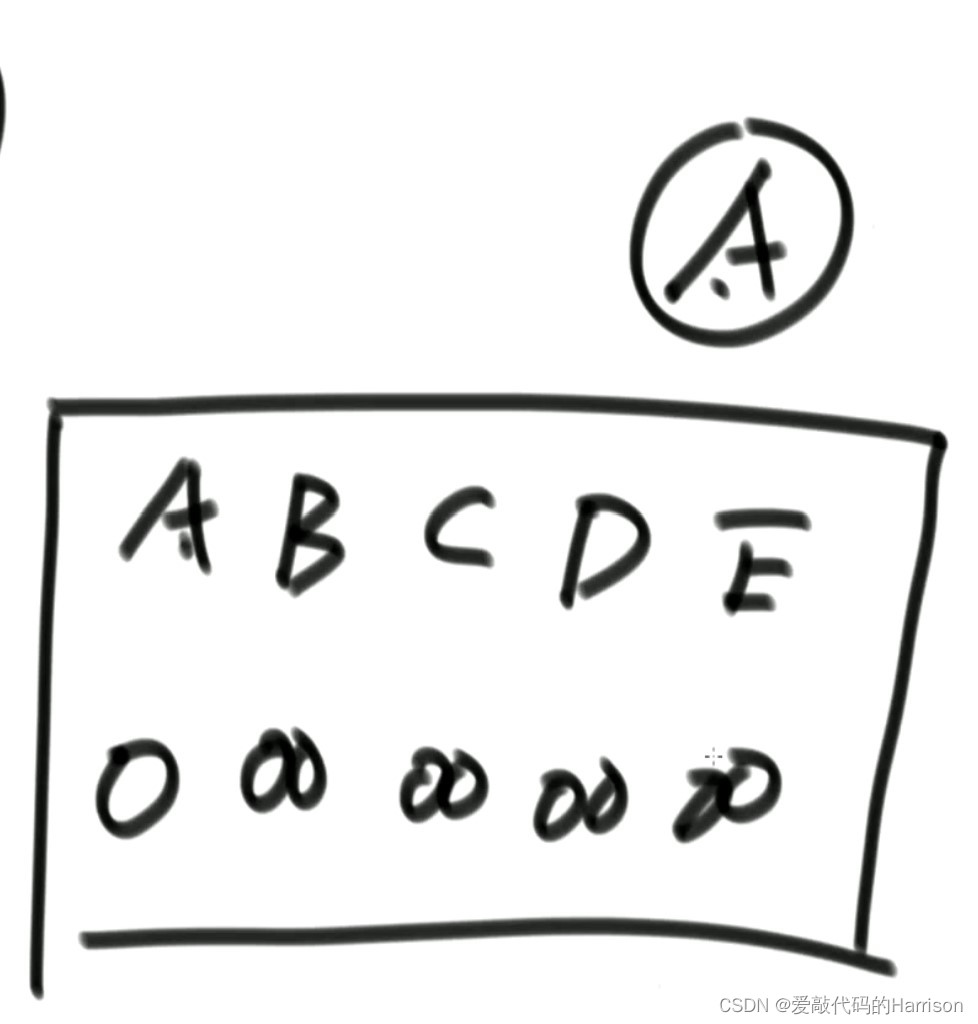 A
A B C D E
0 ∞ ∞ ∞ ∞
CSDN @爱敲代码的Harrison